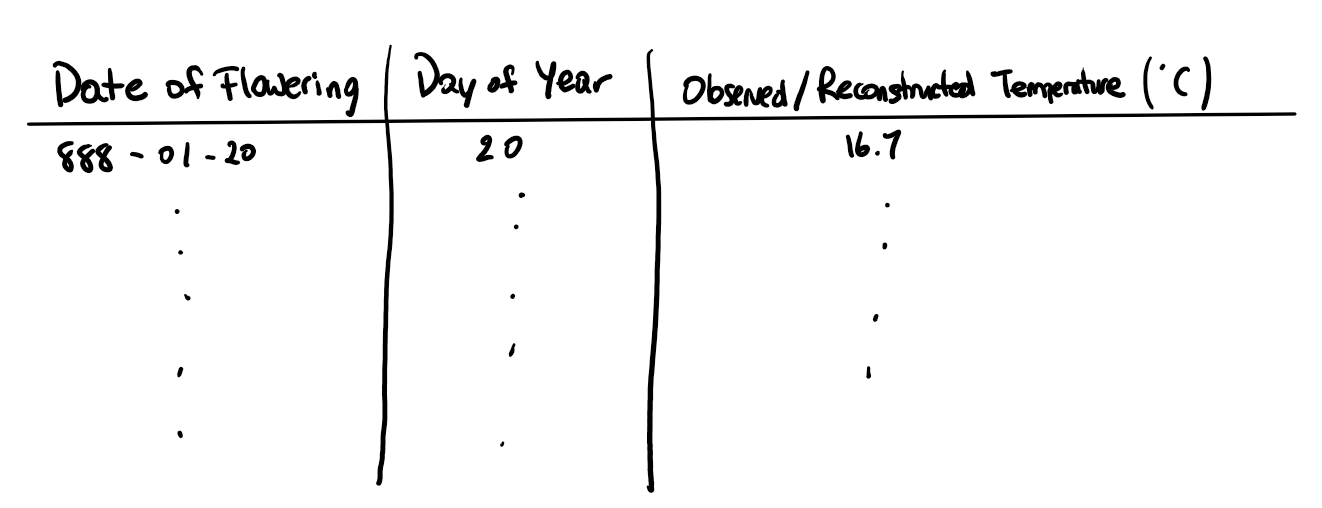 Date of Flowering Day of Year Observed/Reconstructed Temperature (°C)
888-01-20 20 16.7